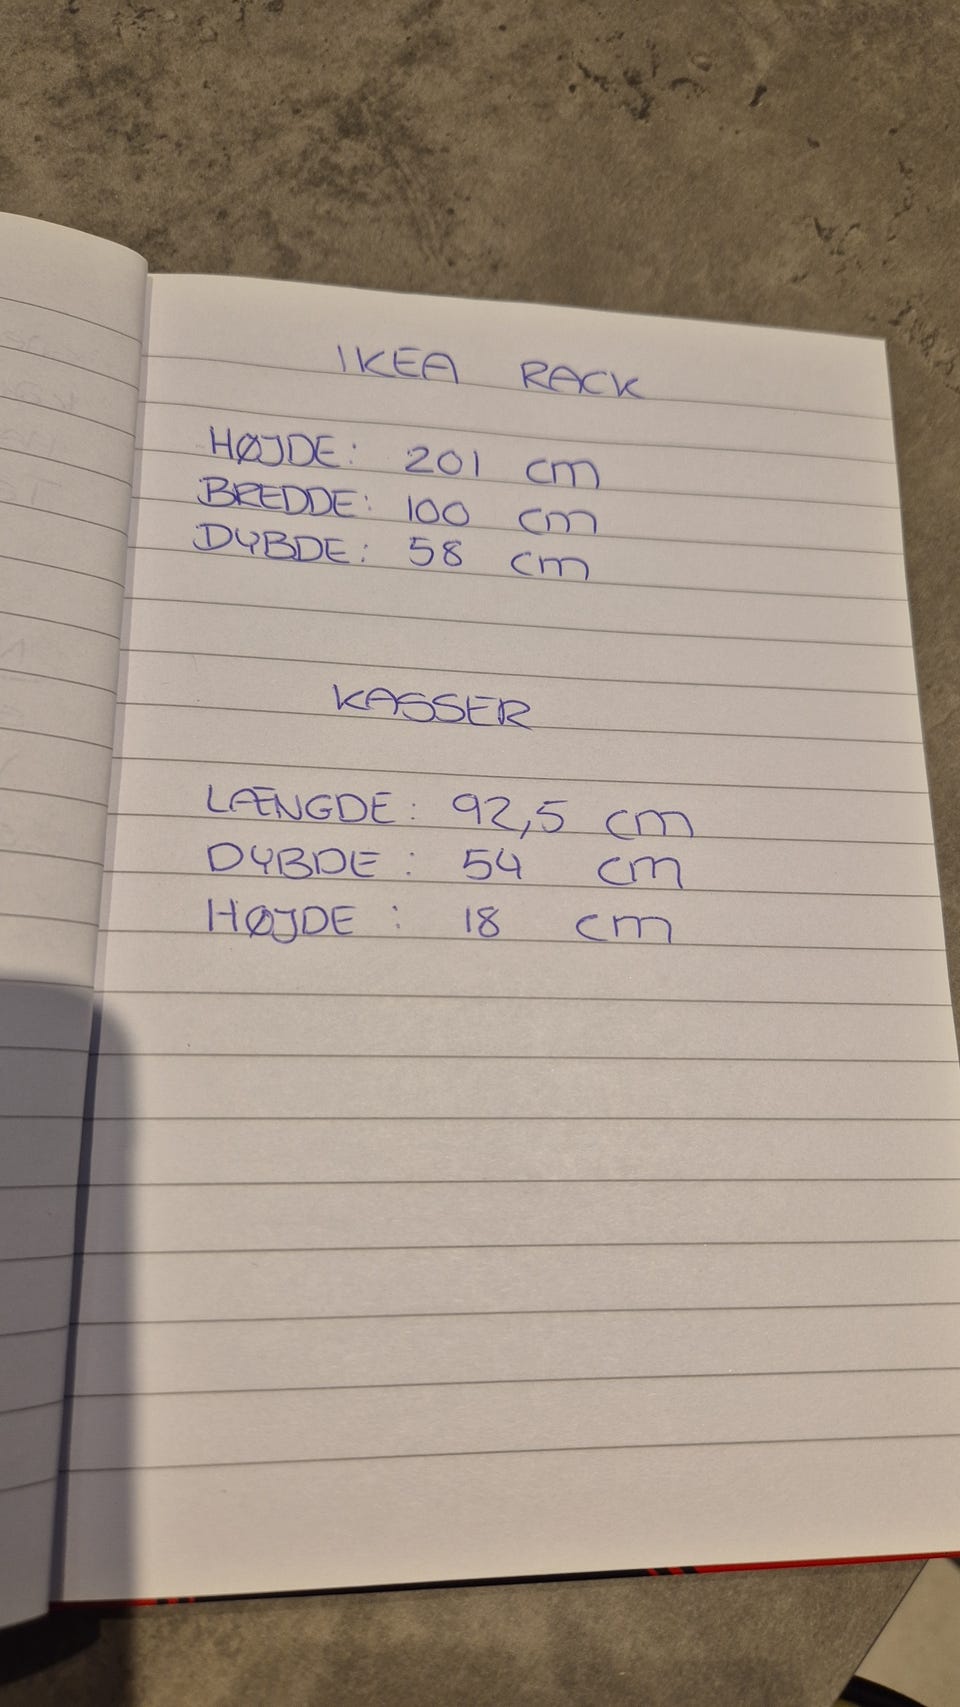 IKEA RACK
HØJDE: 201 cm
BREDDE: 100 cm
DYBDE: 58 cm
KASSER
LÆNGDE: 92,5 cm
DYBDE: 54 cm
HØJDE: 18 cm